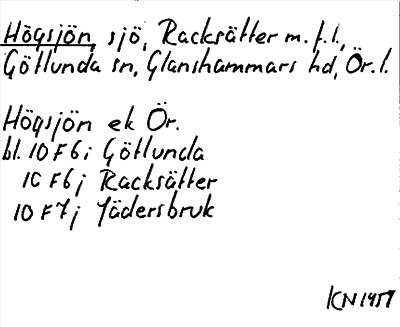 Högsjön, sjö, Racksätter m.fl.,
Götlunda sn, Glanshammars hd, Ör. l.
Högsjön ek Ör.
bl. 10 F 6 i Götlunda
10 F 6 j Racksätter
10 F 7 j Jädersbruk